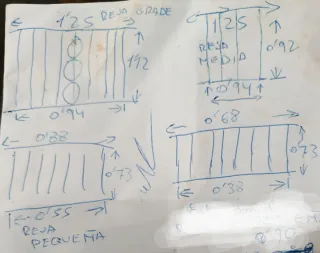 1'25 REJA GRADE
1'12
0'94
1'25
REJA
MEDIA
0'92
0'94
0'88
0'73
0'55
REJA
PEQUEÑA
0'68
0'73
0'38